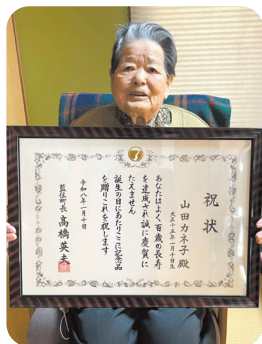 祝状
山田カネ子殿
大正十五年一月十日生
あなたはよく百歳の長寿
を達成され誠に慶賀に
たえません
誕生の日にあたりここに記念品
を贈りこれを祝します
令和八年一月十日
藍住町長 高橋英夫